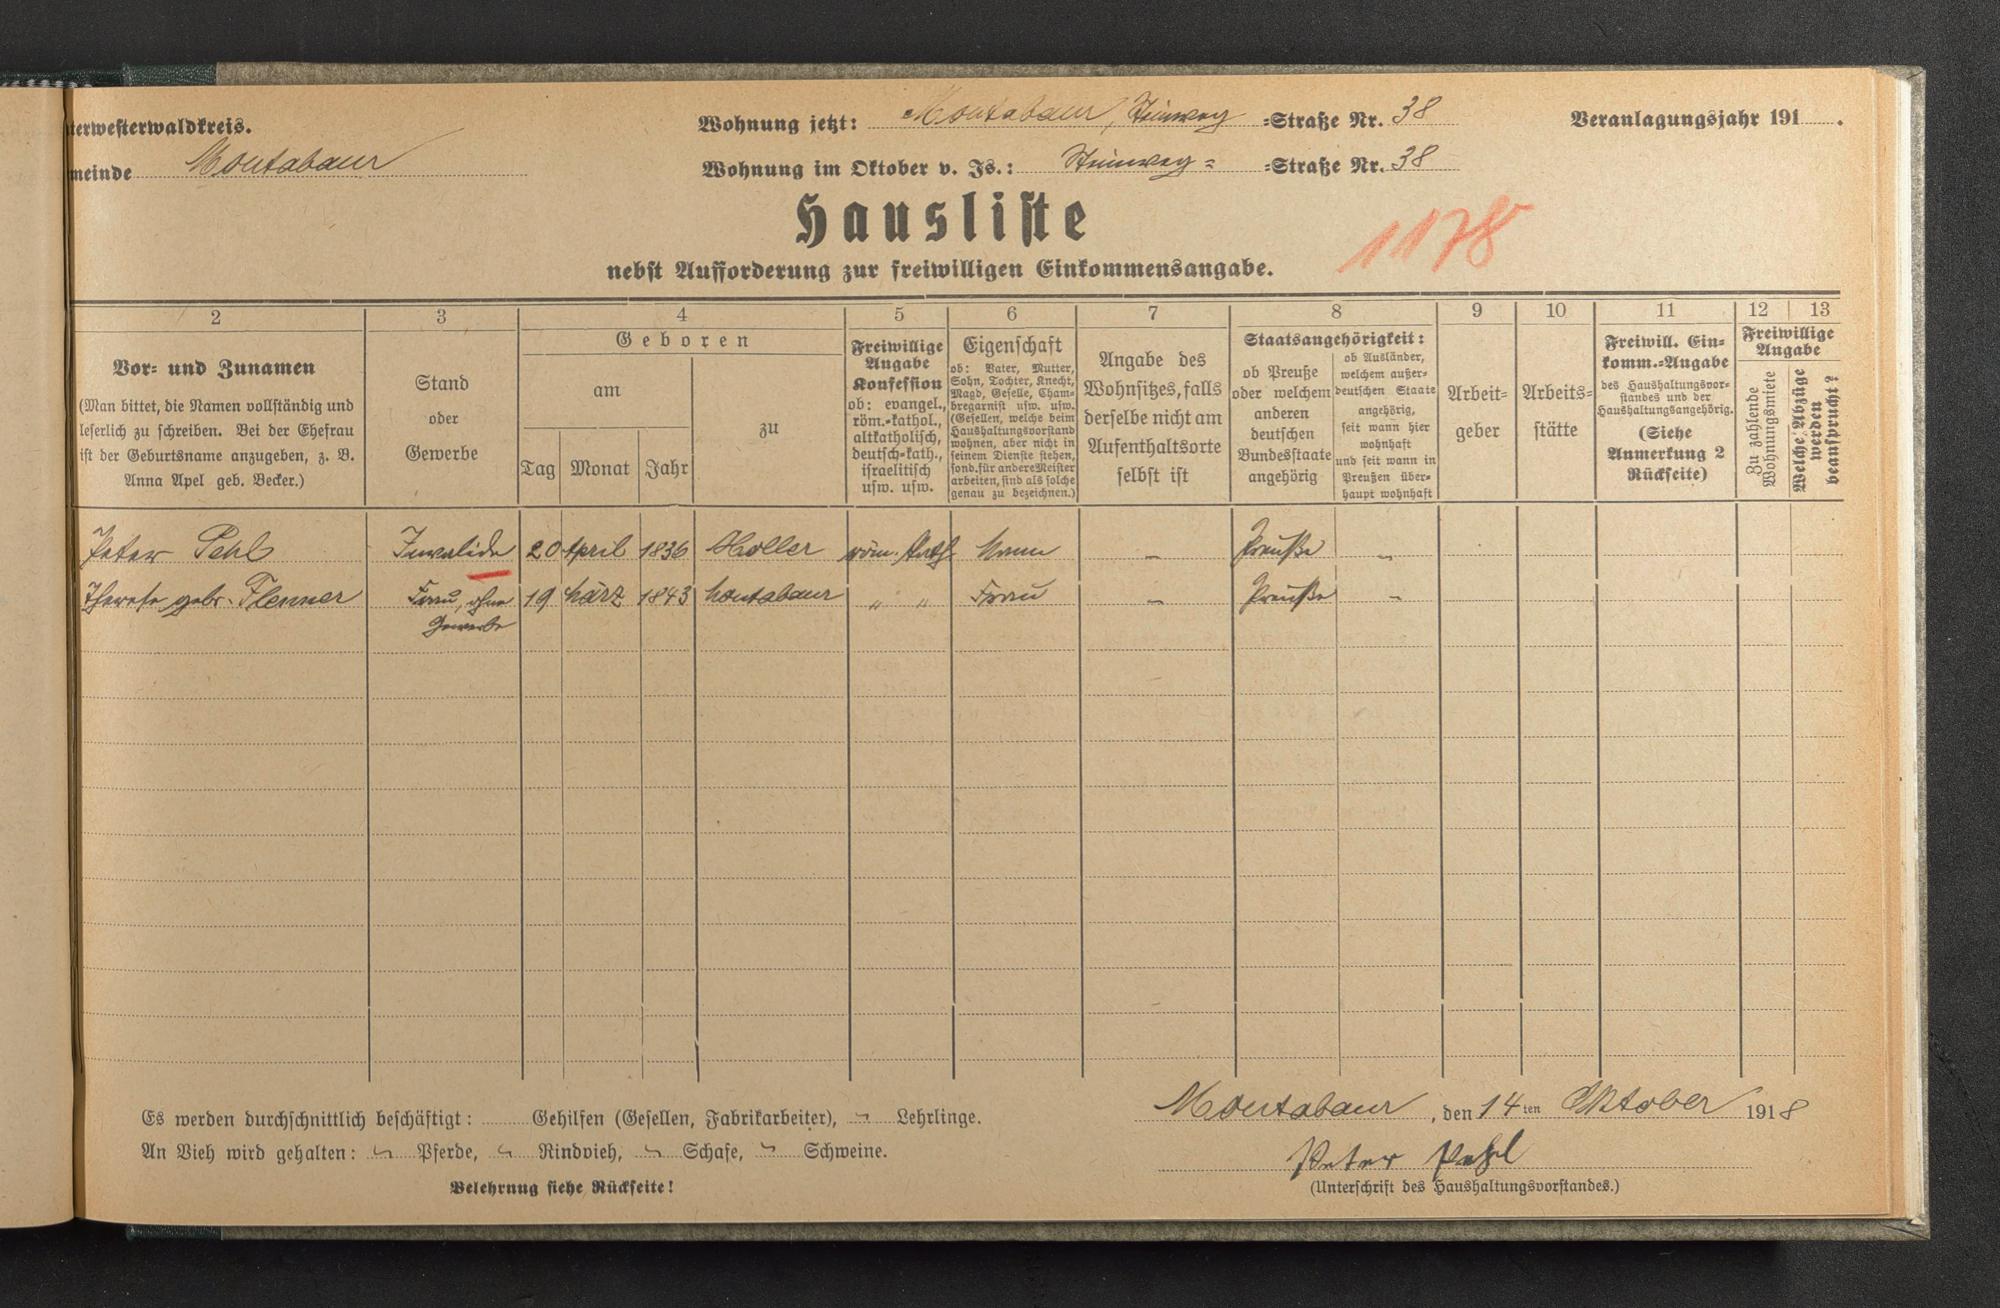 terwesterwaldkreis.
meinde Montabaur
Wohnung jetzt: Montabaur, Steinweg =Straße Nr. 38
Wohnung im Oktober v. Js.: Steinweg= =Straße Nr. 38
Veranlagungsjahr 191 .
Hausliste
1178
nebst Aufforderung zur freiwilligen Einkommensangabe.
2 3 4 5 6 7 8 9 10 11 12 13
Vor= und Zunamen
(Man bittet, die Namen vollständig und
leserlich zu schreiben. Bei der Ehefrau
ist der Geburtsname anzugeben, z. B.
Anna Apel geb. Becker.)
Stand
oder
Gewerbe
Geboren
am
Tag Monat Jahr
zu
Freiwillige
Angabe
Konfession
ob: evangel.,
röm.=kathol.,
altkatholisch,
deutsch=kath.,
israelitisch
usw. usw.
Eigenschaft
ob: Vater, Mutter,
Sohn, Tochter, Knecht,
Magd, Geselle, Cham=
bregarnist usw. usw.
(Gesellen, welche beim
Haushaltungsvorstand
wohnen, aber nicht in
seinem Dienste stehen,
sond. für andere Meister
arbeiten, sind als solche
genau zu bezeichnen.)
Angabe des
Wohnsitzes, falls
derselbe nicht am
Aufenthaltsorte
selbst ist
Staatsangehörigkeit:
ob Preuße
oder welchem
anderen
deutschen
Bundesstaate
angehörig
ob Ausländer,
welchem außer=
deutschen Staate
angehörig,
seit wann hier
wohnhaft
und seit wann in
Preußen über=
haupt wohnhaft
Arbeit=
geber
Arbeits=
stätte
Freiwill. Ein=
komm.=Angabe
des Haushaltungsvor=
standes und der
Haushaltungsangehörig.
(Siehe
Anmerkung 2
Rückseite)
Freiwillige
Angabe
Zu zahlende
Wohnungsmiete
Welche Abzüge
werden
beansprucht?
Peter Pehl Invalide 20 April 1836 Holler röm. kath. Mann – Preuße –
Therese gebr. Flenner Frau, ohne 19 März 1843 Montabaur " " Frau – Preuße –
Gewerbe
Es werden durchschnittlich beschäftigt: Gehilfen (Gesellen, Fabrikarbeiter), Lehrlinge.
An Vieh wird gehalten: Pferde, Rindvieh, Schafe, Schweine.
Belehrung siehe Rückseite!
Montabaur, den 14ten Oktober 1918
Peter Pehl
(Unterschrift des Haushaltungsvorstandes.)